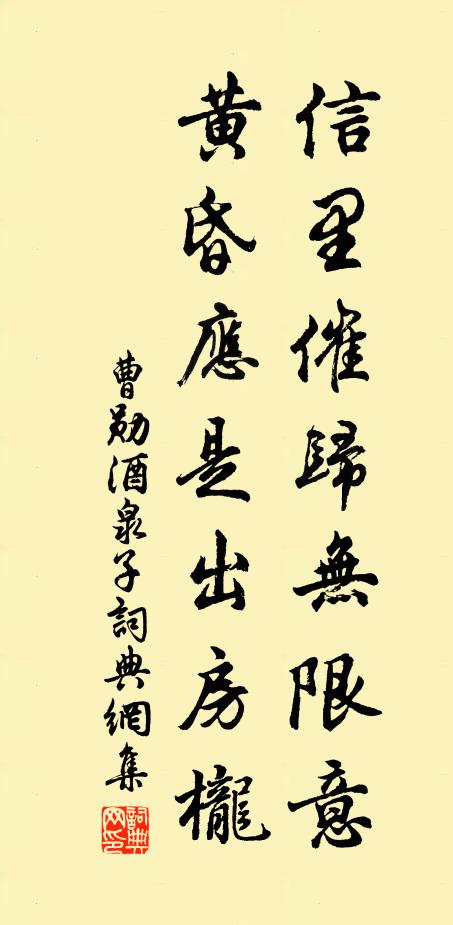 信里催歸無限意
黄昏應是出房櫳
曹勛酒泉子詞典網集
詞典网印